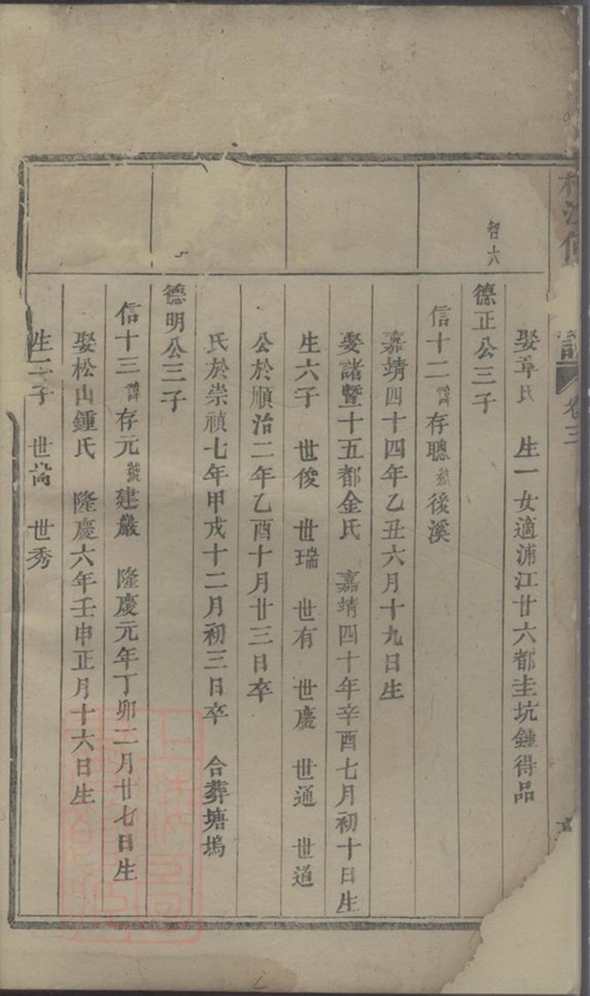 卷三
娶章氏 生一女適浦江廿六都圭坑鍾得品
智六
德正公三子
信十二諱存聰號後溪
嘉靖四十四年乙丑六月十九日生
娶諸暨十五都金氏 嘉靖四十年辛酉七月初十日生
生六子 世俊 世瑞 世有 世慶 世通 世道
公於順治二年乙酉十月廿三日卒
氏於崇禎七年甲戌十二月初三日卒 合葬塘塢
德明公三子
信十三諱存元號建嚴 隆慶元年丁卯二月廿七日生
娶松山鍾氏 隆慶六年壬申正月十六日生
生二子 世嵩 世秀